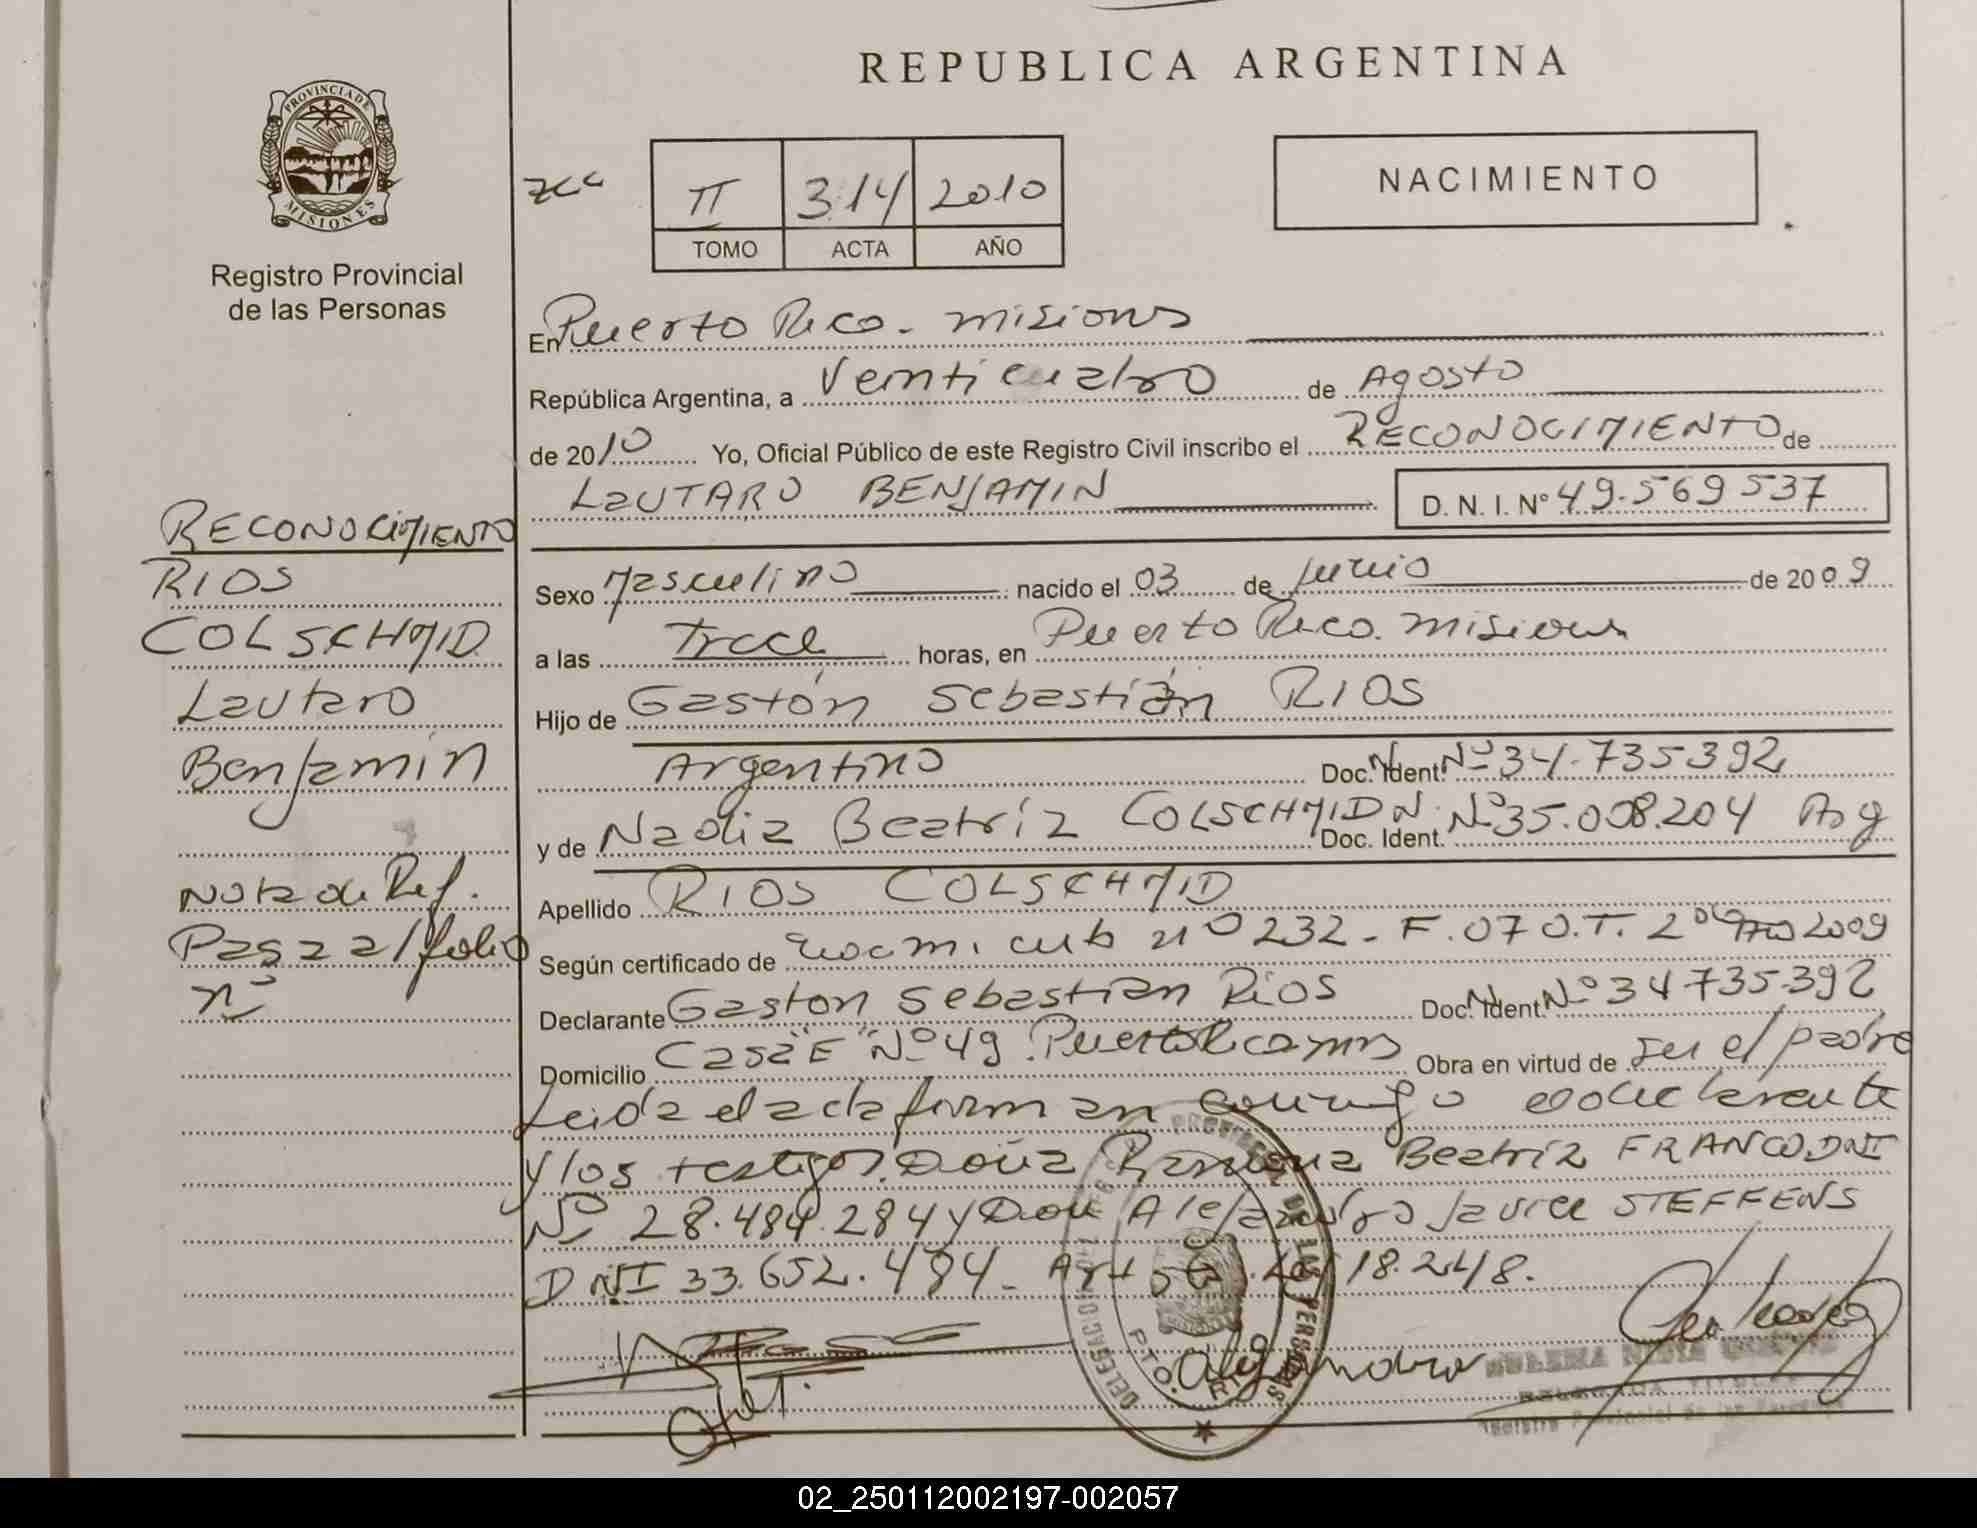 REPUBLICA ARGENTINA
PROVINCIA DE
MISIONES
Registro Provincial
de las Personas
II 314 2010
TOMO ACTA AÑO
NACIMIENTO
En Puerto Rico - Misiones
República Argentina, a Veinticuatro de Agosto
de 2010 Yo, Oficial Público de este Registro Civil inscribo el RECONOCIMIENTO de
LAUTARO BENJAMIN D. N. I. Nº 49.569537
RECONOCIMIENTO
RIOS
COLSCHMID
Lautaro
Benjamín
Nota de Ref.
Pasa al folio
nº
Sexo Masculino nacido el 03 de Junio de 2009
a las Trece horas, en Puerto Rico. Misiones
Hijo de Gastón Sebastián RIOS
Argentino Doc. N. Ident. Nº 34.735.392
y de Nadia Beatríz COLSCHMID N. Doc. Ident. Nº 35.008.204 Arg
Apellido RIOS COLSCHMID
Según certificado de nº 232 - F. 07 O.T. 2º 2009
Declarante Gaston Sebastian Rios Doc. N. Ident. Nº 34735.392
Domicilio Casa "E" Nº 49. Puerto Rico mns Obra en virtud de ser el padre
Leida el acta firman conmigo el declarante
y los testigos. Doña Ramona Beatríz FRANCO DNI
Nº 28.484.284 y Don Alejandro Javier STEFFENS
DNI 33.652.494 - Art 18.248.
PROVINCIAL DE LAS PERSONAS
DELEGACION
PTO. RICO
Alejandro
DELEGADA TITULAR
Registro Provincial de las Personas
02_250112002197-002057